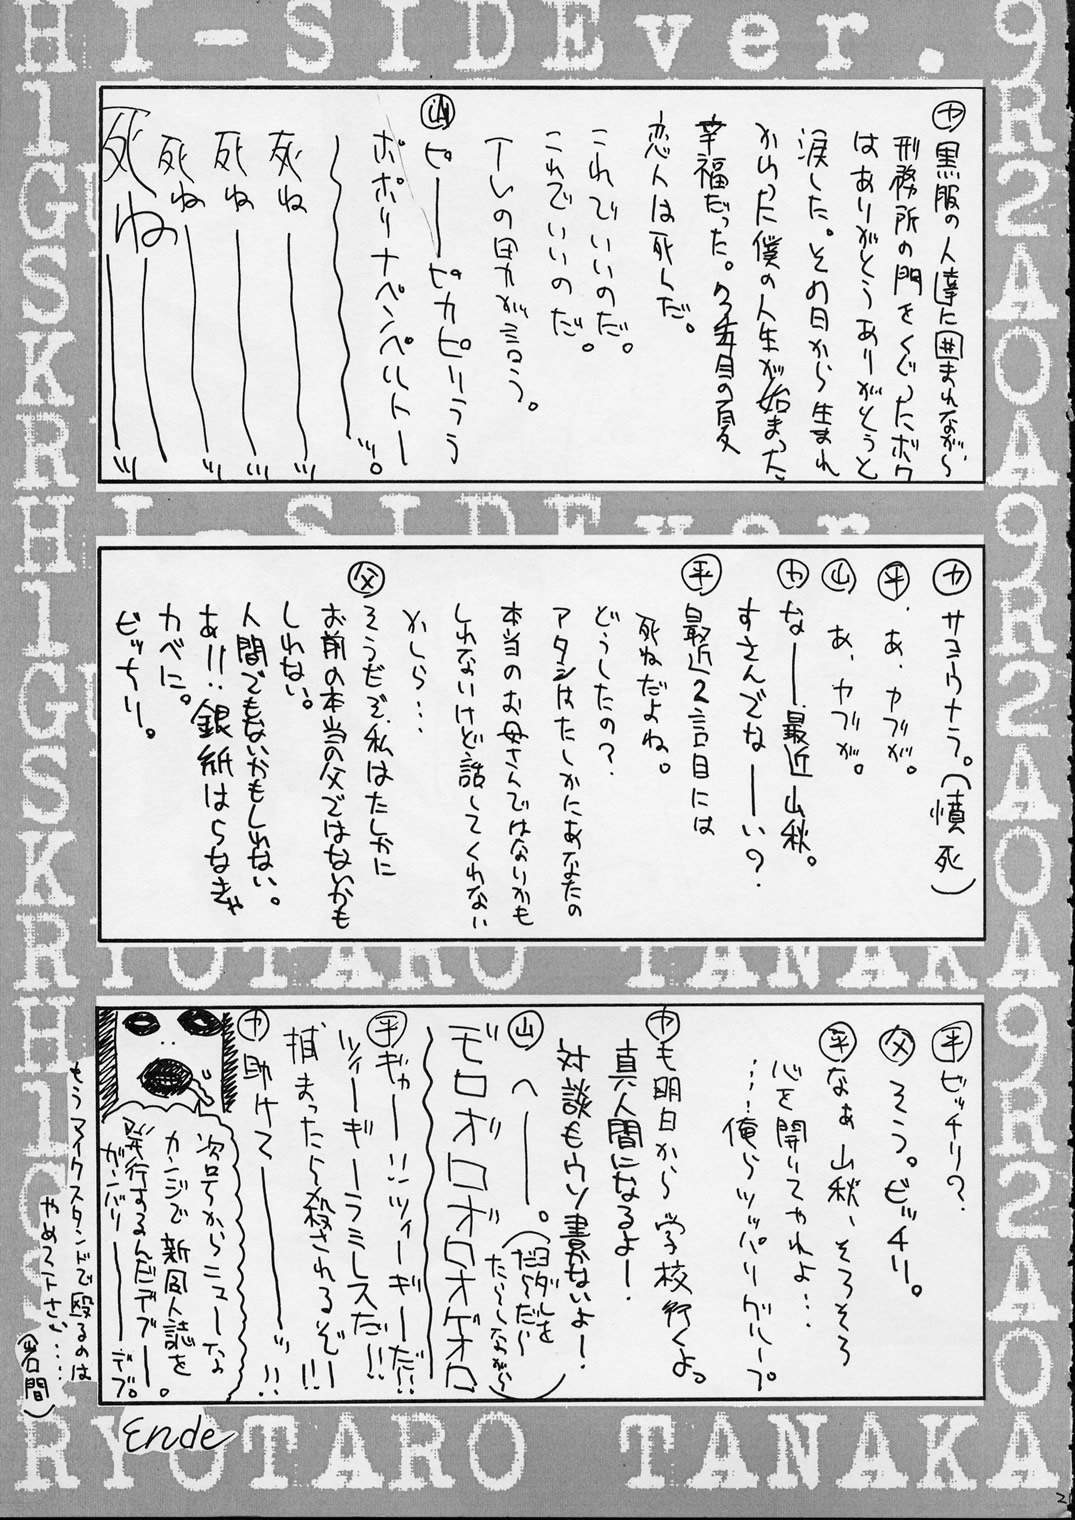 HI-SIDEver.9
㋳黒服の人達に囲まれながら、
刑務所の門をくぐったボク
はありがとうありがとうと
涙した。その日から生まれ
かわった僕の人生が始まった
幸福だった。7年目の夏
恋人は死んだ。
これでいいのだ。
これでいいのだ。
Tレの男が言う。
㊤ピーーピカピリうう
ポポリナペンペルトー
〜〜〜ッ。
死ねーーーッ
死ねーーーッ
死ねーーーッ
死ねーーーッ
㋳サヨウナラ。(憤死)
㊥、あ、ヤブが。
㊤あ、ヤブが。
㋳なーー最近山秋。
すさんでなーーい?
㊥最近2言目には
死ねだよね。
どうしたの?
アタシはたしかにあなたの
本当のお母さんではないかも
しれないけど話してくれない
かしら…
㊛そうだぞ、私はたしかに
お前の本当の父ではないかも
しれない。
人間でもないかもしれない。
あ!!銀紙はらなきゃ
カベに。
ビッチリ。
㊥ビッチリ?
㊛そう。ビッチリ。
㊥なぁ山秋、そろそろ
心を開いてやれよ…
…俺らツッパリグループ
も明日から学校行くよっ
真人間になるよー!
対談もウソ書かないよー!
㊤へーーー。(ヨダレを
だら〜だら〜
たら〜しながら)
モロオ゛ロオ゛ロオゲオロ
㊥ギャー!!ツィーギーだ!!
ツィーギーラミレスだ!!
捕まったら殺されるぞ!!!
㋳助けてーーーッ!!
次号からニューな
カンジで新同人誌を
発行するんだデブー。
ガンバリーーーデブ。
もうマイクスタンドで殴るのは
やめて下さい…
(岩間)
Ende
RYOTARO TANAKA
2